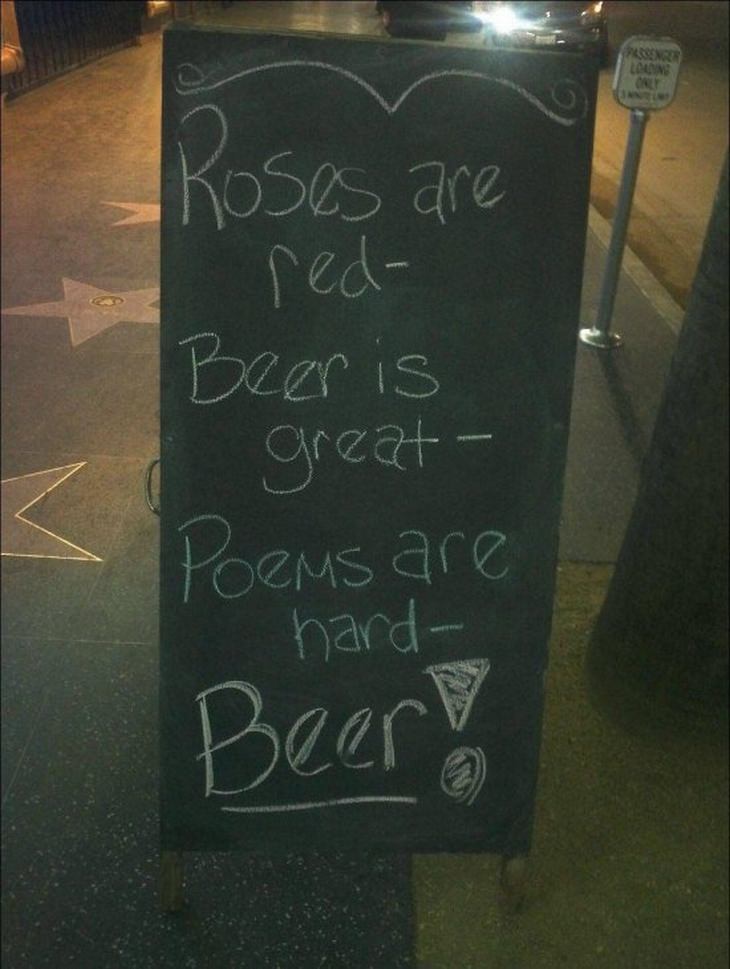 PASSENGER
LOADING
ONLY
Roses are
red-
Beer is
great-
Poems are
hard-
Beer!